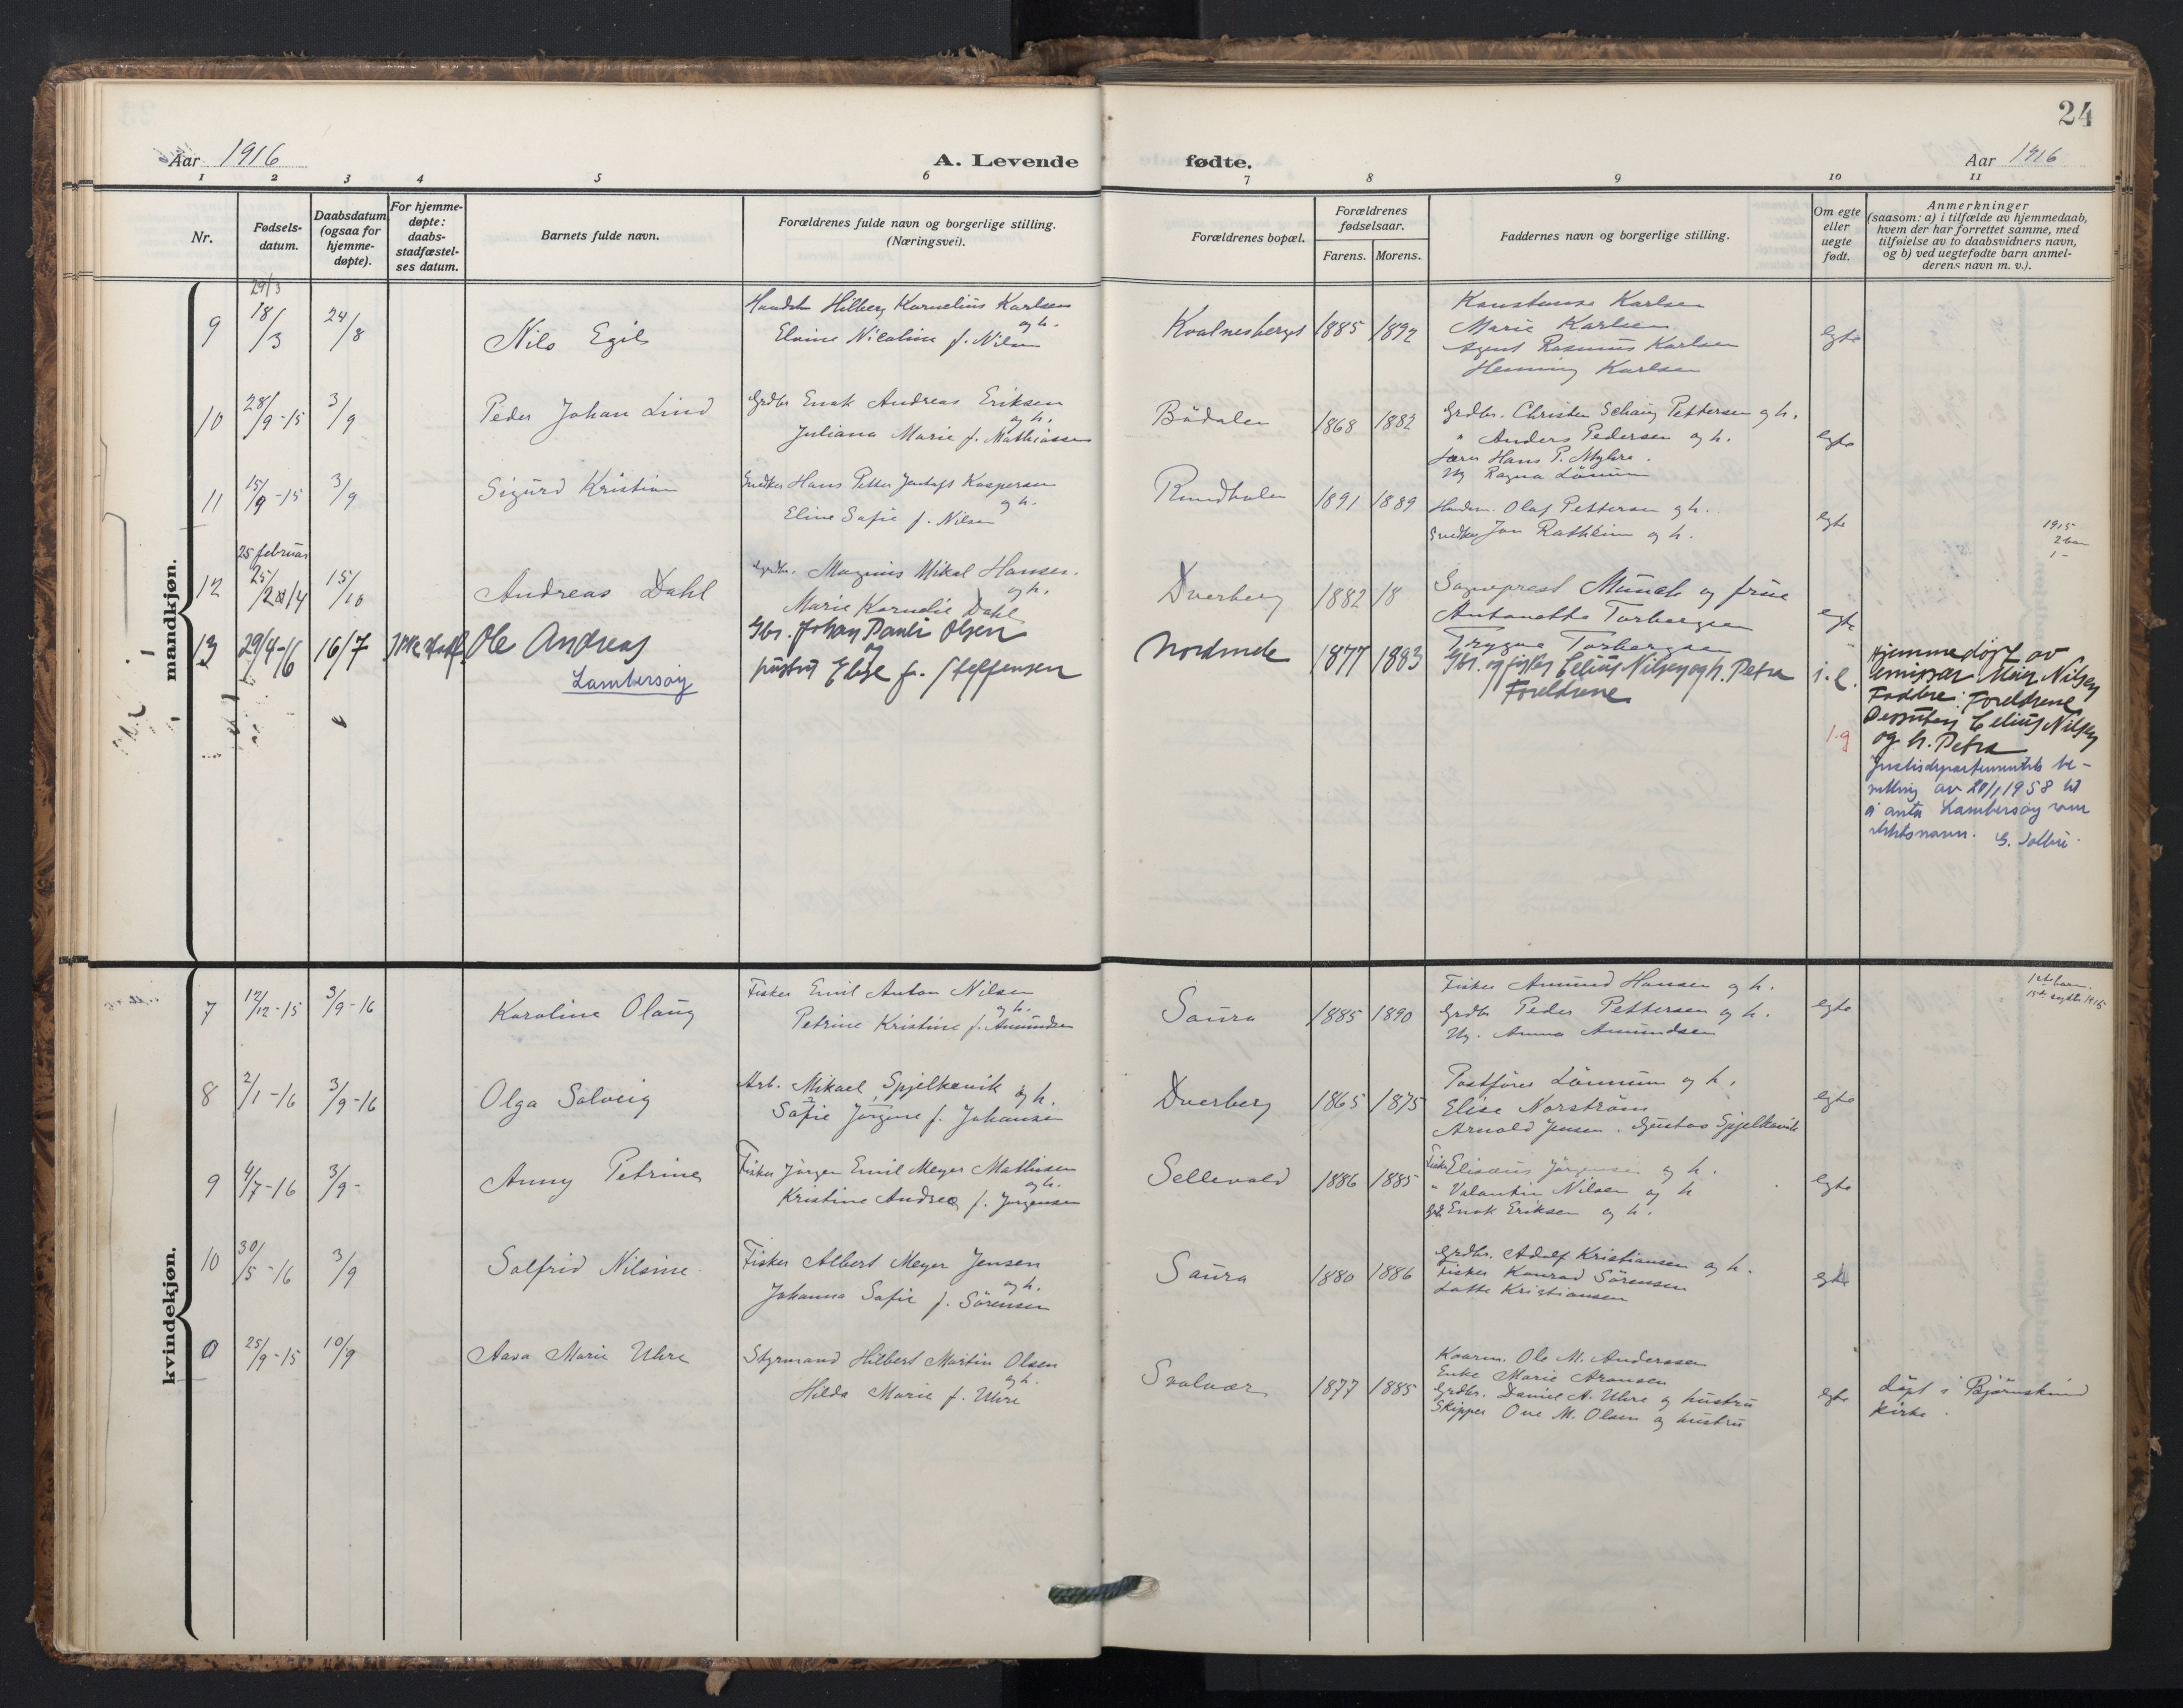 24
Aar 1916 A. Levende fødte. Aar 1916
1 2 3 4 5 6 7 8 9 10 11
Nr.
Fødsels-
datum.
Daabsdatum
(ogsaa for
hjemme-
døpte).
For hjemme-
døpte:
daabs-
stadfæstel-
ses datum.
Barnets fulde navn.
Forældrenes fulde navn og borgerlige stilling.
(Næringsvei).
Forældrenes bopæl.
Forældrenes
fødselsaar.
Farens. Morens.
Faddernes navn og borgerlige stilling.
Om egte
eller
uegte
født.
Anmerkninger
(saasom: a) i tilfælde av hjemmedaab,
hvem der har forrettet samme, med
tilføielse av to daabsvidners navn,
og b) ved uegtefødte barn anmel-
derens navn m. v.).
mandkjøn.
29/3
9 18/3 24/8 Nils Egil
Hilberg Kornelius Karlsen
og h.
Elvine Nicoline f. Nilsen
Kvalnesberget 1885 1892
Konstanse Karlsen
Marie Karlsen
Agent Rasmus Karlsen
Henning Karlsen
Egte
10 28/9-15 3/9 Peder Johan Lind
Grdbr Enok Andreas Eriksen
og h.
Juliana Marie f. Mathiassen
Bödalen 1868 1882
Grdbr. Christen Schanj Pettersen og h.
" Anders Pedersen og h.
Lærer Hans P. Myhre.
Ug Ragna Lönnum
Egte
11 15/9-15 3/9 Sigurd Kristian
Snedker Hans Petter Kaspersen
og h.
Eline Sofie f. Nilsen
1891 1889
Olaf Pettersen og h.
Snedker Jon Rathleim og h.
Egte
1915
25 februar
12 25/2 15/10 Andreas Dahl
Grdbr. Magnus Mikal Hansen.
og h.
Marie Kornelie Dahl
Dverberg 1882 18
Sogneprest Munch og frue
Antonette Torbergsen
Trygve Torbergsen
egte
13 29/4-16 16/7 Ikke stadf. Ole Andreas
Lambersøy
Gbr. Johan Pauli Olsen
og
hustru Elise f. Steffensen
Nordmele 1877 1883
Gbr. og fisker Celius Nilsen og h. Petra
Foreldrene
i. e.
1.g
Hjemmedøpt av
emissær Meier Nilsen
Faddere: Foreldrene
Dessuten Celius Nilsen
og h. Petra
Justisdepartementets be-
villing av 28/1 1958 til
å anta Lambersøy som
slektsnavn.
kvindekjøn.
7 12/12-15 3/9-16 Karoline Olaug
Fisker Emil Anton Nilsen
og h.
Petrine Kristine f. Amundsen
Saura 1885 1890
Fisker Amund Hansen og h.
Grdbr Peder Pettersen og h.
Ug. Anna Amundsen
egte
8 2/1-16 3/9-16 Olga Solveig
Arb. Mikael Spjelkavik og h.
Sofie Jörgine f. Johansen
Dverberg 1865 1875
Postfører Lönnum og h.
Elise Norström
Arnold Jensen. Gustav Spjelkavik
egte
9 4/7-16 3/9- Anny Petrine
Fisker Jörgen Emil Meyer Mathisen
og h.
Kristine Andrea f. Jörgensen
Sellevold 1886 1885
Fisker Elisæus Jörgensen og h.
" Valentin Nilsen og h
Grdbr Enok Eriksen og h.
Egte
10 30/5-16 3/9 Solfrid Nilsine.
Fisker Albert Meyer Jensen
og h.
Johanna Sofie f. Sörensen
Saura 1880 1886
Grdbr. Adolf Kristiansen og h.
Fisker Konrad Sörensen
Lotte Kristiansen
egte
0 25/9-15 10/9 Aasa Marie Uhre
Styrmand Hilbert Martin Olsen
og h.
Hilda Marie f. Uhre
Svolvær 1877 1885
Ole M. Anderssen
Enke Marie Aronsen
Grdbr. Daniel A. Uhre og hustru
Skipper Ove M. Olsen og hustru
Egte
döpt i Björnskind
kirke.